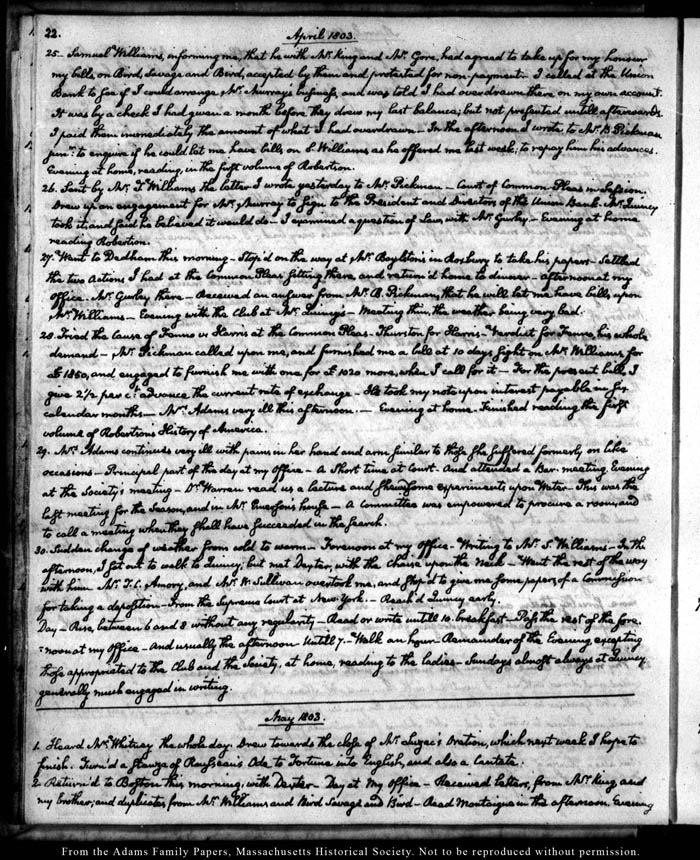 22.
April 1803.
25. Samuel Williams, informing me, that he with Mr. King and Mr. Gore, had agreed to take up for my honour
my bills on Bird, Savage and Bird, accepted by them and protested for non-payment. I called at the Union
Bank to see if I could arrange Mr. Murray's business, and was told I had overdrawn there on my own account.
It was by a check I had given a month before they drew my last balance; but not presented untill afterwards.
I paid them immediately the amount of what I had overdrawn. In the afternoon I wrote, to Mr. B. Pickman
junr. to enquire if he could let me have bills on S. Williams as he offered me last week; to repay him his advances.
Evening at home, reading, in the first volume of Robertson.
26. Sent by Mr. T. Williams the letter I wrote yesterday to Mr. Pickman — Court of Common Pleas in Session.
Drew up an engagement for Mr. Murray to sign to the President and Directors of the Union Bank. Mr. Quincy
took it; and said he believed it would do — I examined a question of Law, with Mr. Gurley — Evening at home
reading Robertson.
27. Went to Dedham this morning — Stop'd on the way at Mr. Boylston's in Roxbury to take his papers — Settled
the two Actions I had at the Common Pleas sitting there, and return'd home to dinner — afternoon at my
Office. Mr. Gurley there — Received an answer from Mr. B. Pickman, that he will let me have bills, upon
Mr. Williams — Evening with the Club at Mr. Quincy's — Meeting thin, the weather being very bad.
28. Tried the Cause of Fenno vs Harris at the Common Pleas — Thurston for Harris — Verdict for Fenno, his whole
demand — Mr. Pickman called upon me, and furnished me a bill at 10 days sight on Mr. Williams, for
£ 1850, and engaged to furnish me with one for £ 1020 more, when I call for it — For the present bill, I
give 2 1/2 per ct. advance, the current rate of exchange — He took my note upon interest payable in six
calendar months — Mrs. Adams very ill this afternoon. — Evening at home. Finished reading the first
volume of Robertson's History of America.
29. Mrs. Adams continues very ill with pains in her hand and arm similar to those she suffered formerly on like
occasions — Principal part of the day at my Office — A short time at Court — And attended a Bar-meeting. Evening
at the Society's meeting — Dr. Warren read us a lecture and shew'd some experiments upon Water — This was the
last meeting for the Season, and in Mr. Emerson's house — A Committee was empowered to procure a room, and
to call a meeting when they shall have succeeded in the search.
30. Sudden change of weather from cold to warm — Forenoon at my Office — Writing to Mr. S. Williams — In the
afternoon, I set out to walk to Quincy; but met Dexter, with the Chaise upon the Neck — Went the rest of the way
with him. Mr. T. C. Amory, and Mr. W. Sullivan overtook me, and stop'd to give me some papers, of a Commission
for taking a deposition — from the Supreme Court at New York. — Reach'd Quincy early.
Day — Rise, between 6 and 8, without any regularity — Read or write untill 10. breakfast — Pass the rest of the fore-
-noon at my Office — And usually the afternoon Untill 7 — Walk an hour — Remainder of the Evening, excepting
those appropriated to the Club and the Society, at home, reading to the ladies — Sundays almost always at Quincy
generally much engaged in writing.
May 1803.
1. Heard Mr. Whitney the whole day. Drew towards the close of Mr. Luzac's Oration, which next week I hope to
finish. Turn'd a stanza of Rousseau's Ode to Fortune into English, and also a Cantata.
2. Return'd to Boston this morning, with Dexter — Day at my Office — Received letters, from Mr. King and
my brother; and duplicates, from Mr. Williams and Bird Savage and Bird — Read Montaigne in the afternoon. Evening
From the Adams Family Papers, Massachusetts Historical Society. Not to be reproduced without permission.